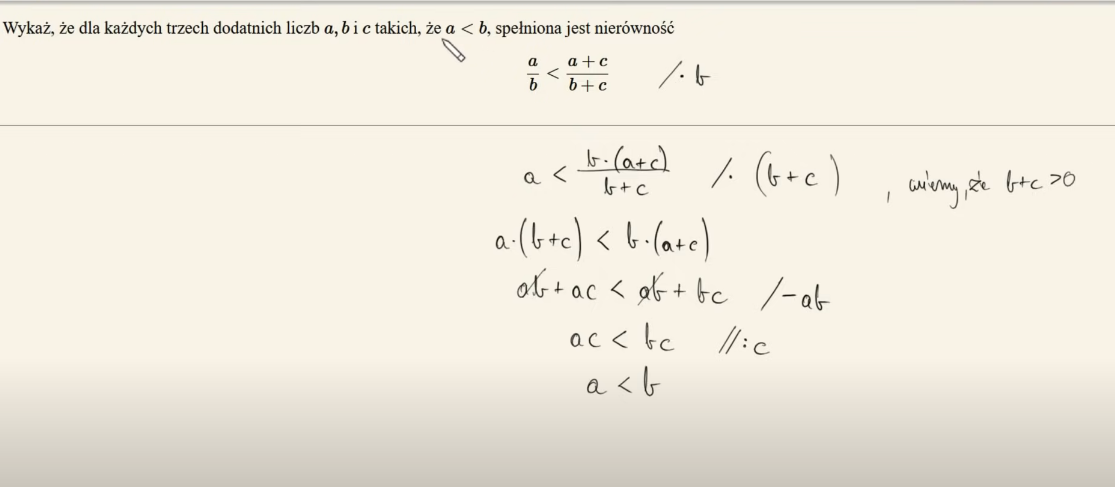 Wykaż, że dla każdych trzech dodatnich liczb a, b i c takich, że a < b, spełniona jest nierówność
a/b < (a + c)/(b + c) /· b
a < b·(a+c)/(b+c) /· (b+c) , wiemy, że b+c >0
a·(b+c) < b·(a+c)
ab + ac < ab + bc /-ab
ac < bc //:c
a < b